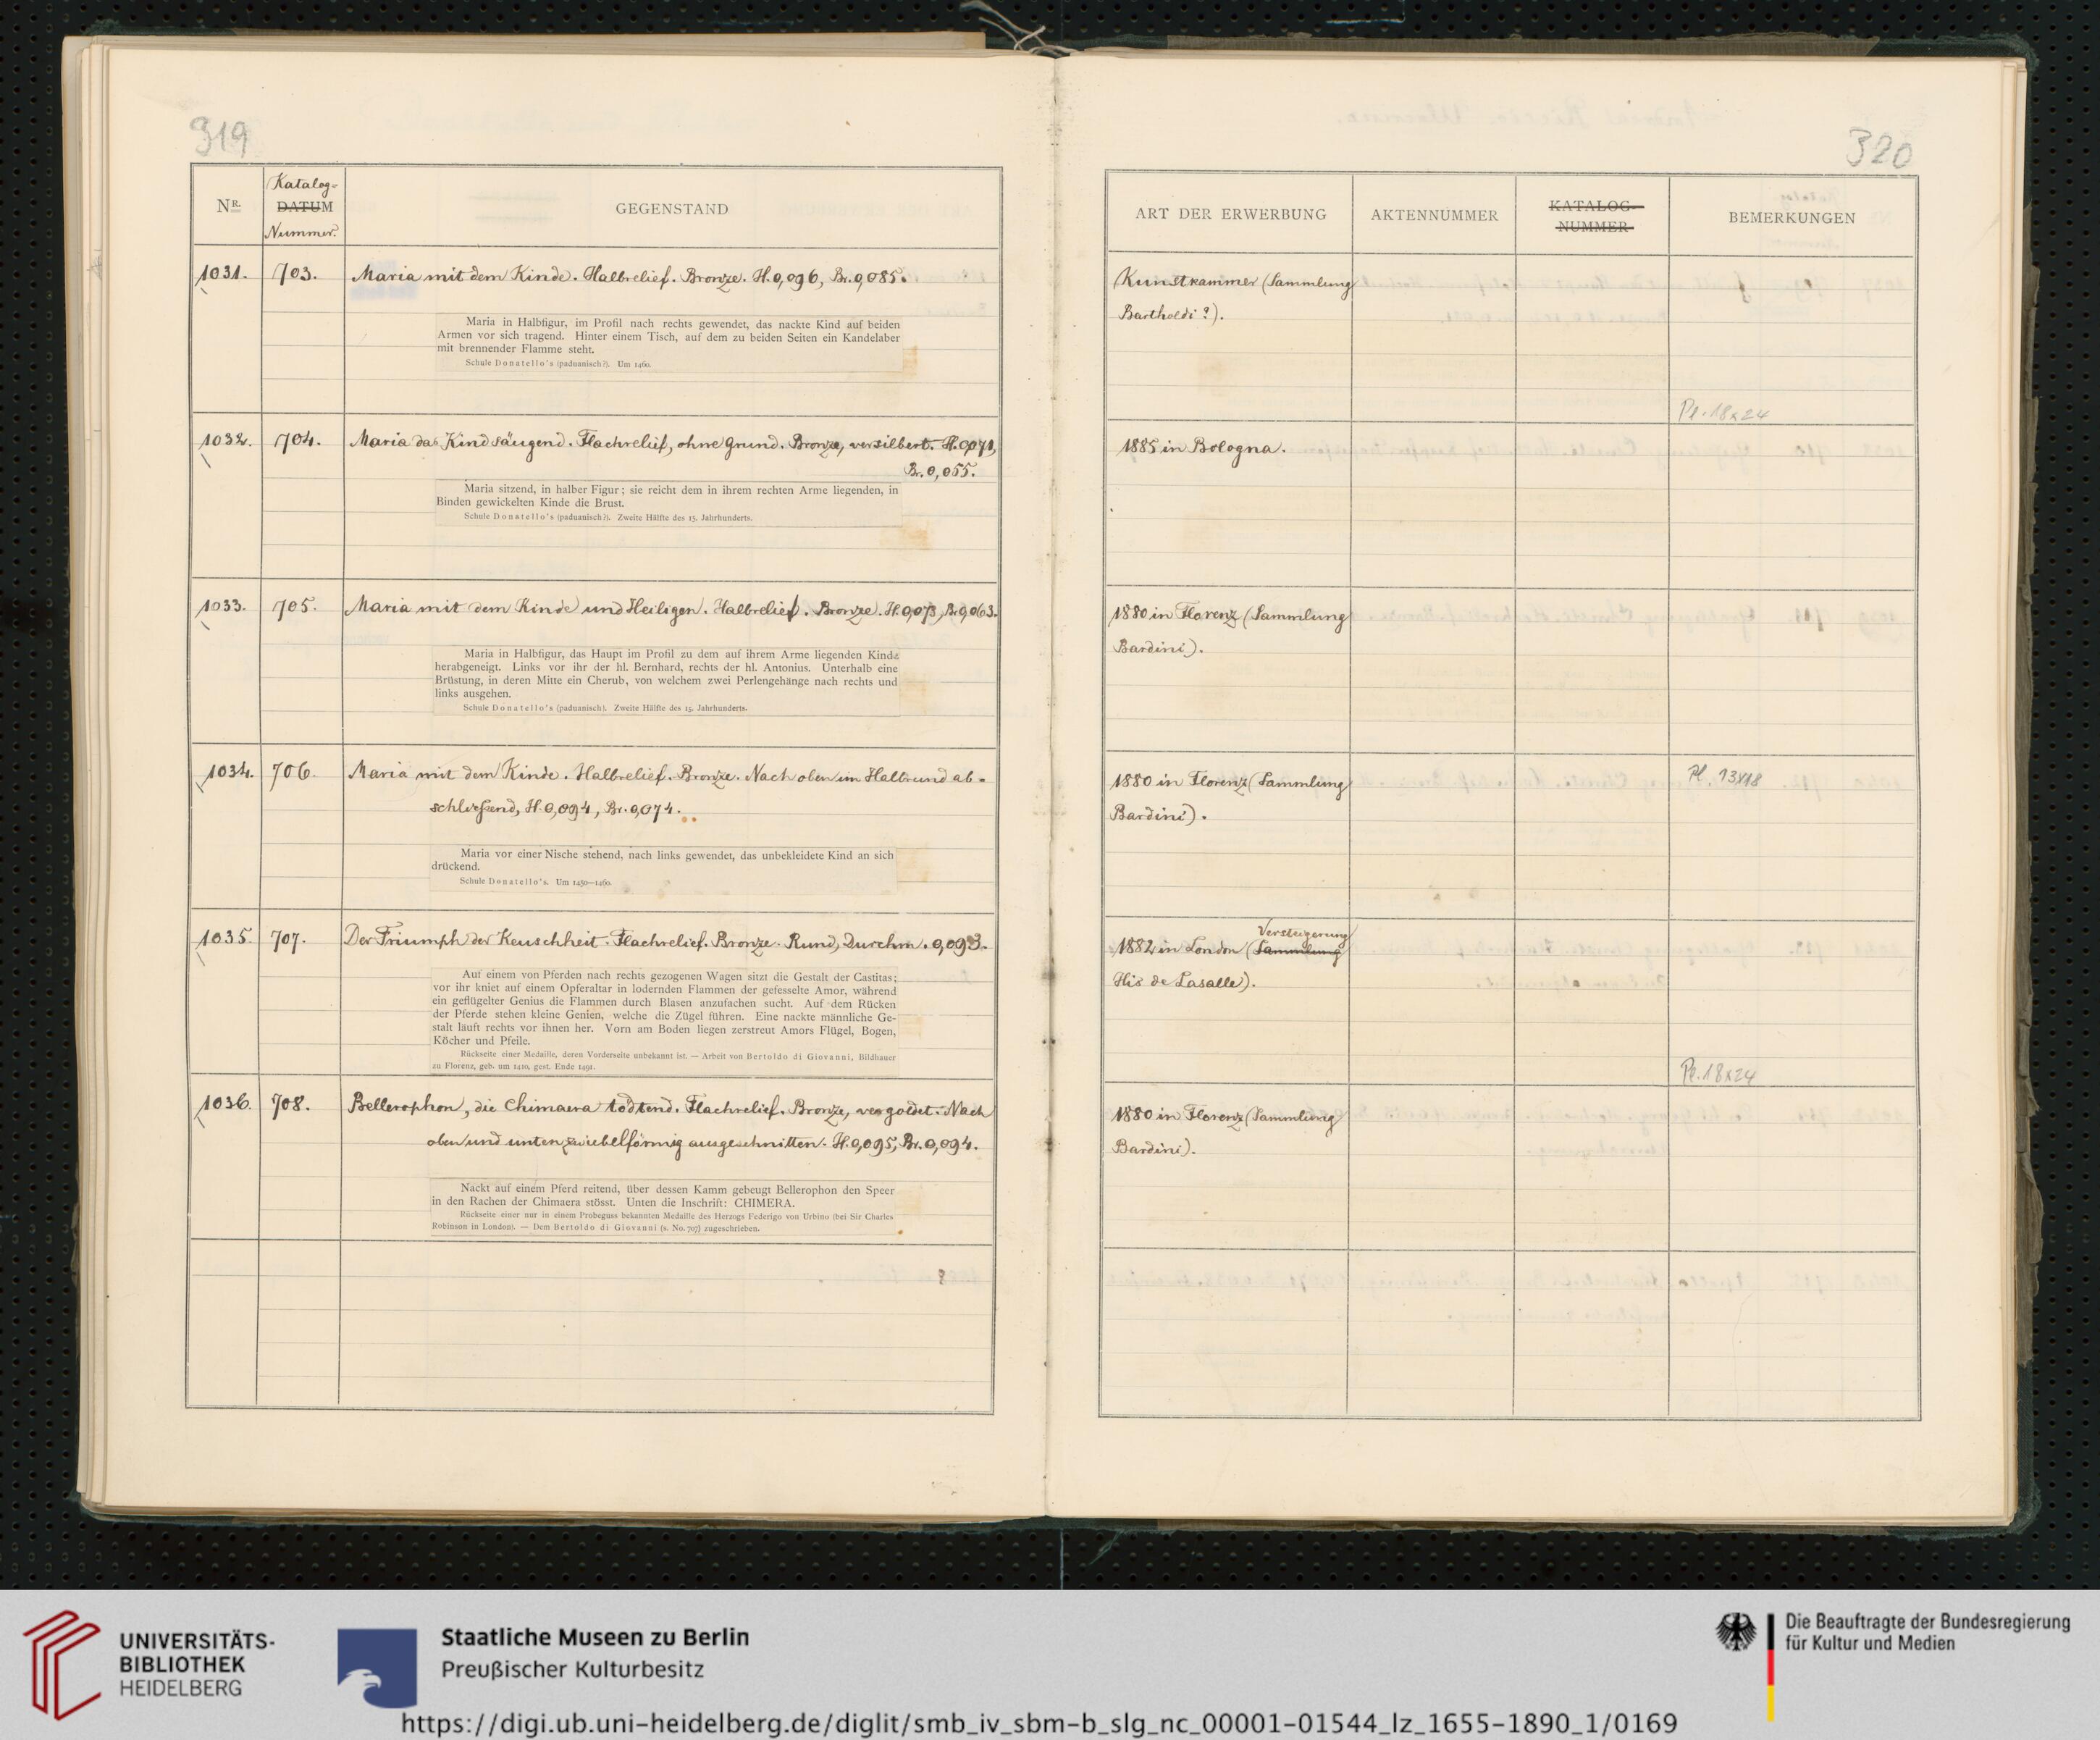 319
Nr.
Katalog-
DATUM
Nummer.
GEGENSTAND
1031. 703. Maria mit dem Kinde. Halbrelief. Bronze. H. 0,096, Br. 0,085.
Maria in Halbfigur, im Profil nach rechts gewendet, das nackte Kind auf beiden
Armen vor sich tragend. Hinter einem Tisch, auf dem zu beiden Seiten ein Kandelaber
mit brennender Flamme steht.
Schule Donatello's (paduanisch?). Um 1460.
1032. 704. Maria das Kind säugend. Flachrelief, ohne Grund. Bronze, versilbert. H. 0,071,
Br. 0,055.
Maria sitzend, in halber Figur; sie reicht dem in ihrem rechten Arme liegenden, in
Binden gewickelten Kinde die Brust.
Schule Donatello's (paduanisch?). Zweite Hälfte des 15. Jahrhunderts.
1033. 705. Maria mit dem Kinde und Heiligen. Halbrelief. Bronze. H. 0,073, Br. 0,063.
Maria in Halbfigur, das Haupt im Profil zu dem auf ihrem Arme liegenden Kinde
herabgeneigt. Links vor ihr der hl. Bernhard, rechts der hl. Antonius. Unterhalb eine
Brüstung, in deren Mitte ein Cherub, von welchem zwei Perlengehänge nach rechts und
links ausgehen.
Schule Donatello's (paduanisch). Zweite Hälfte des 15. Jahrhunderts.
1034. 706. Maria mit dem Kinde. Halbrelief. Bronze. Nach oben im Halbrund ab-
schließend, H. 0,094, Br. 0,074.
Maria vor einer Nische stehend, nach links gewendet, das unbekleidete Kind an sich
drückend.
Schule Donatello's. Um 1450—1460.
1035. 707. Der Triumph der Keuschheit. Flachrelief. Bronze. Rund, Durchm. 0,093.
Auf einem von Pferden nach rechts gezogenen Wagen sitzt die Gestalt der Castitas;
vor ihr kniet auf einem Opferaltar in lodernden Flammen der gefesselte Amor, während
ein geflügelter Genius die Flammen durch Blasen anzufachen sucht. Auf dem Rücken
der Pferde stehen kleine Genien, welche die Zügel führen. Eine nackte männliche Ge-
stalt läuft rechts vor ihnen her. Vorn am Boden liegen zerstreut Amors Flügel, Bogen,
Köcher und Pfeile.
Rückseite einer Medaille, deren Vorderseite unbekannt ist. — Arbeit von Bertoldo di Giovanni, Bildhauer
zu Florenz, geb. um 1410, gest. Ende 1491.
1036. 708. Bellerophon, die Chimaera tödtend. Flachrelief. Bronze, vergoldet. Nach
oben und unten zwiebelförmig ausgeschnitten. H. 0,095, Br. 0,094.
Nackt auf einem Pferd reitend, über dessen Kamm gebeugt Bellerophon den Speer
in den Rachen der Chimaera stösst. Unten die Inschrift: CHIMERA.
Rückseite einer nur in einem Probeguss bekannten Medaille des Herzogs Federigo von Urbino (bei Sir Charles
Robinson in London). — Dem Bertoldo di Giovanni (s. No. 707) zugeschrieben.
320
ART DER ERWERBUNG
AKTENNUMMER
KATALOG-
NUMMER
BEMERKUNGEN
Kunstkammer (Sammlung
Bartholdi?).
Pl. 18x24
1885 in Bologna.
1880 in Florenz (Sammlung
Bardini).
1880 in Florenz (Sammlung
Pl. 13x18
Bardini).
Versteigerung
1882 in London (Sammlung
His de Lasalle).
Pl. 18x24
1880 in Florenz (Sammlung
Bardini).
UNIVERSITÄTS-
BIBLIOTHEK
HEIDELBERG
Staatliche Museen zu Berlin
Preußischer Kulturbesitz
Die Beauftragte der Bundesregierung
für Kultur und Medien
https://digi.ub.uni-heidelberg.de/diglit/smb_iv_sbm-b_slg_nc_00001-01544_lz_1655-1890_1/0169